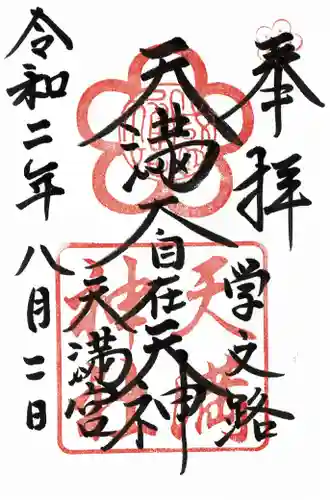 奉拝
学文路
天満大自在天神
天満宮
令和二年八月二日
天満
神社